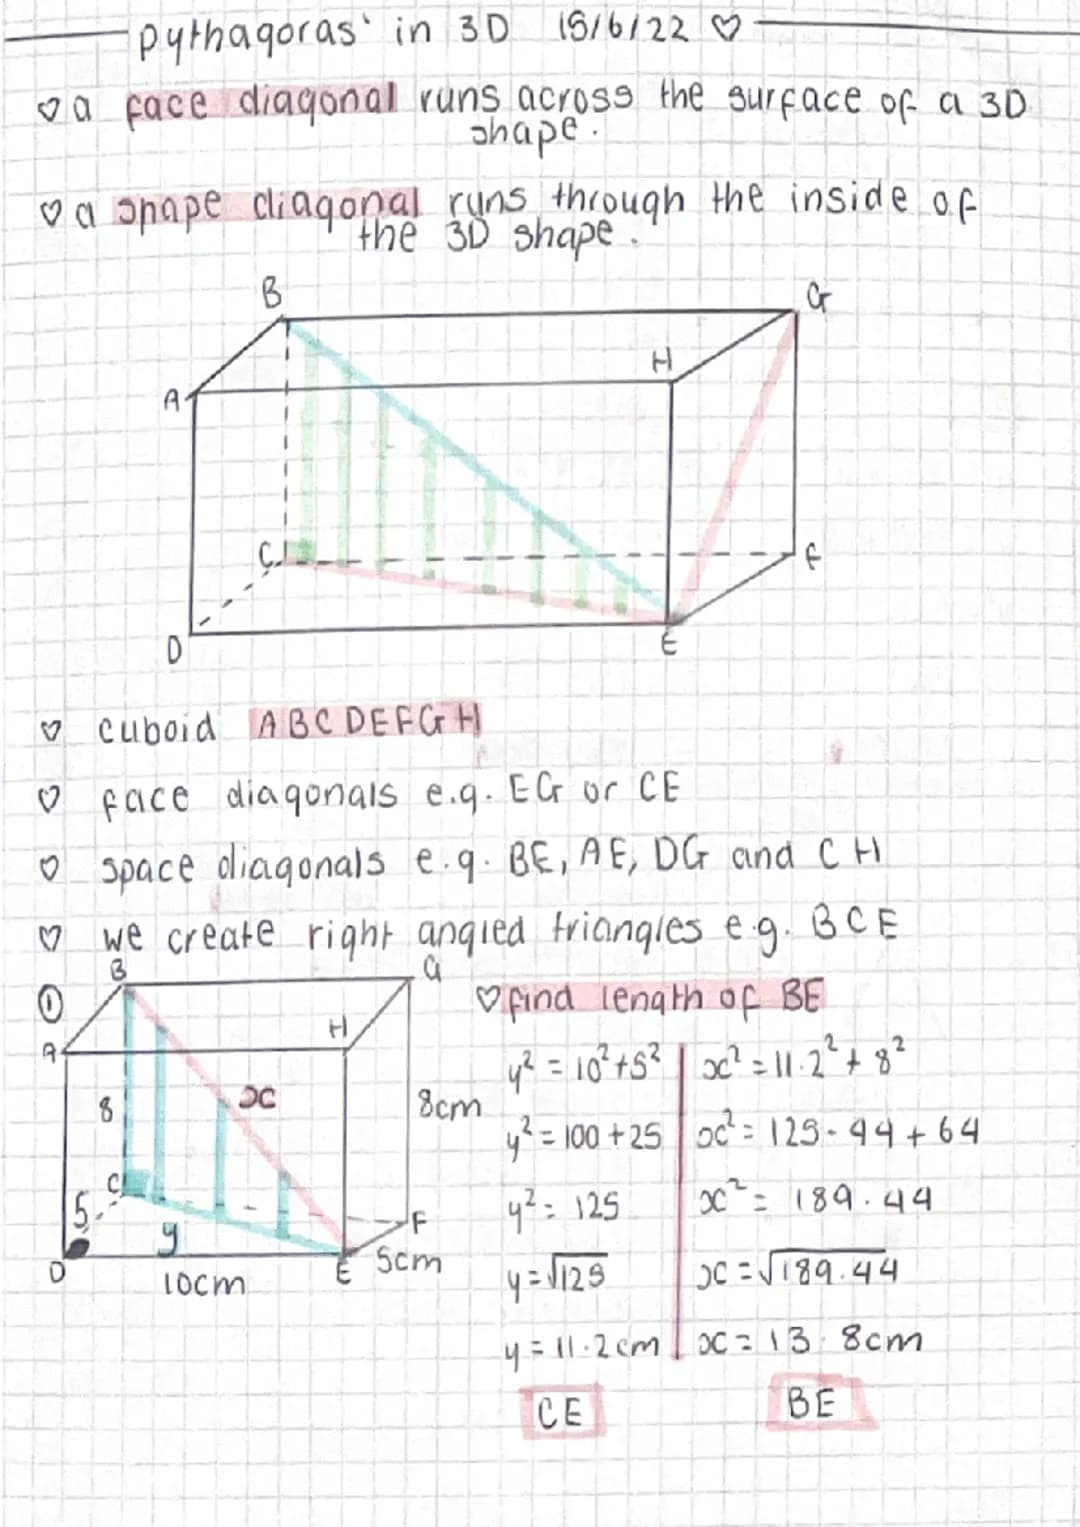 pythagoras' in 3D 15/6/22 ♡
♡ a face diagonal runs across the surface of a 3D
shape.
♡ a shape diagonal runs through the inside of
the 3D shape.
B
G
H
A
C
F
D
E
♡ cuboid ABCDEFGH
♡ face diagonals e.g. EG or CE
♡ space diagonals e.g. BE, AE, DG and CH
♡ we create right angled triangles e.g. BCE
①
B
G
A
H
8
x
8cm
C
5
y
F
D
10cm
E
5cm
♡ find length of BE
y² = 10² + 5²
y² = 100 + 25
y² = 125
y = √125
y = 11.2cm
CE
x² = 11.2² + 8²
x² = 125.44 + 64
x² = 189.44
x = √189.44
x = 13.8cm
BE